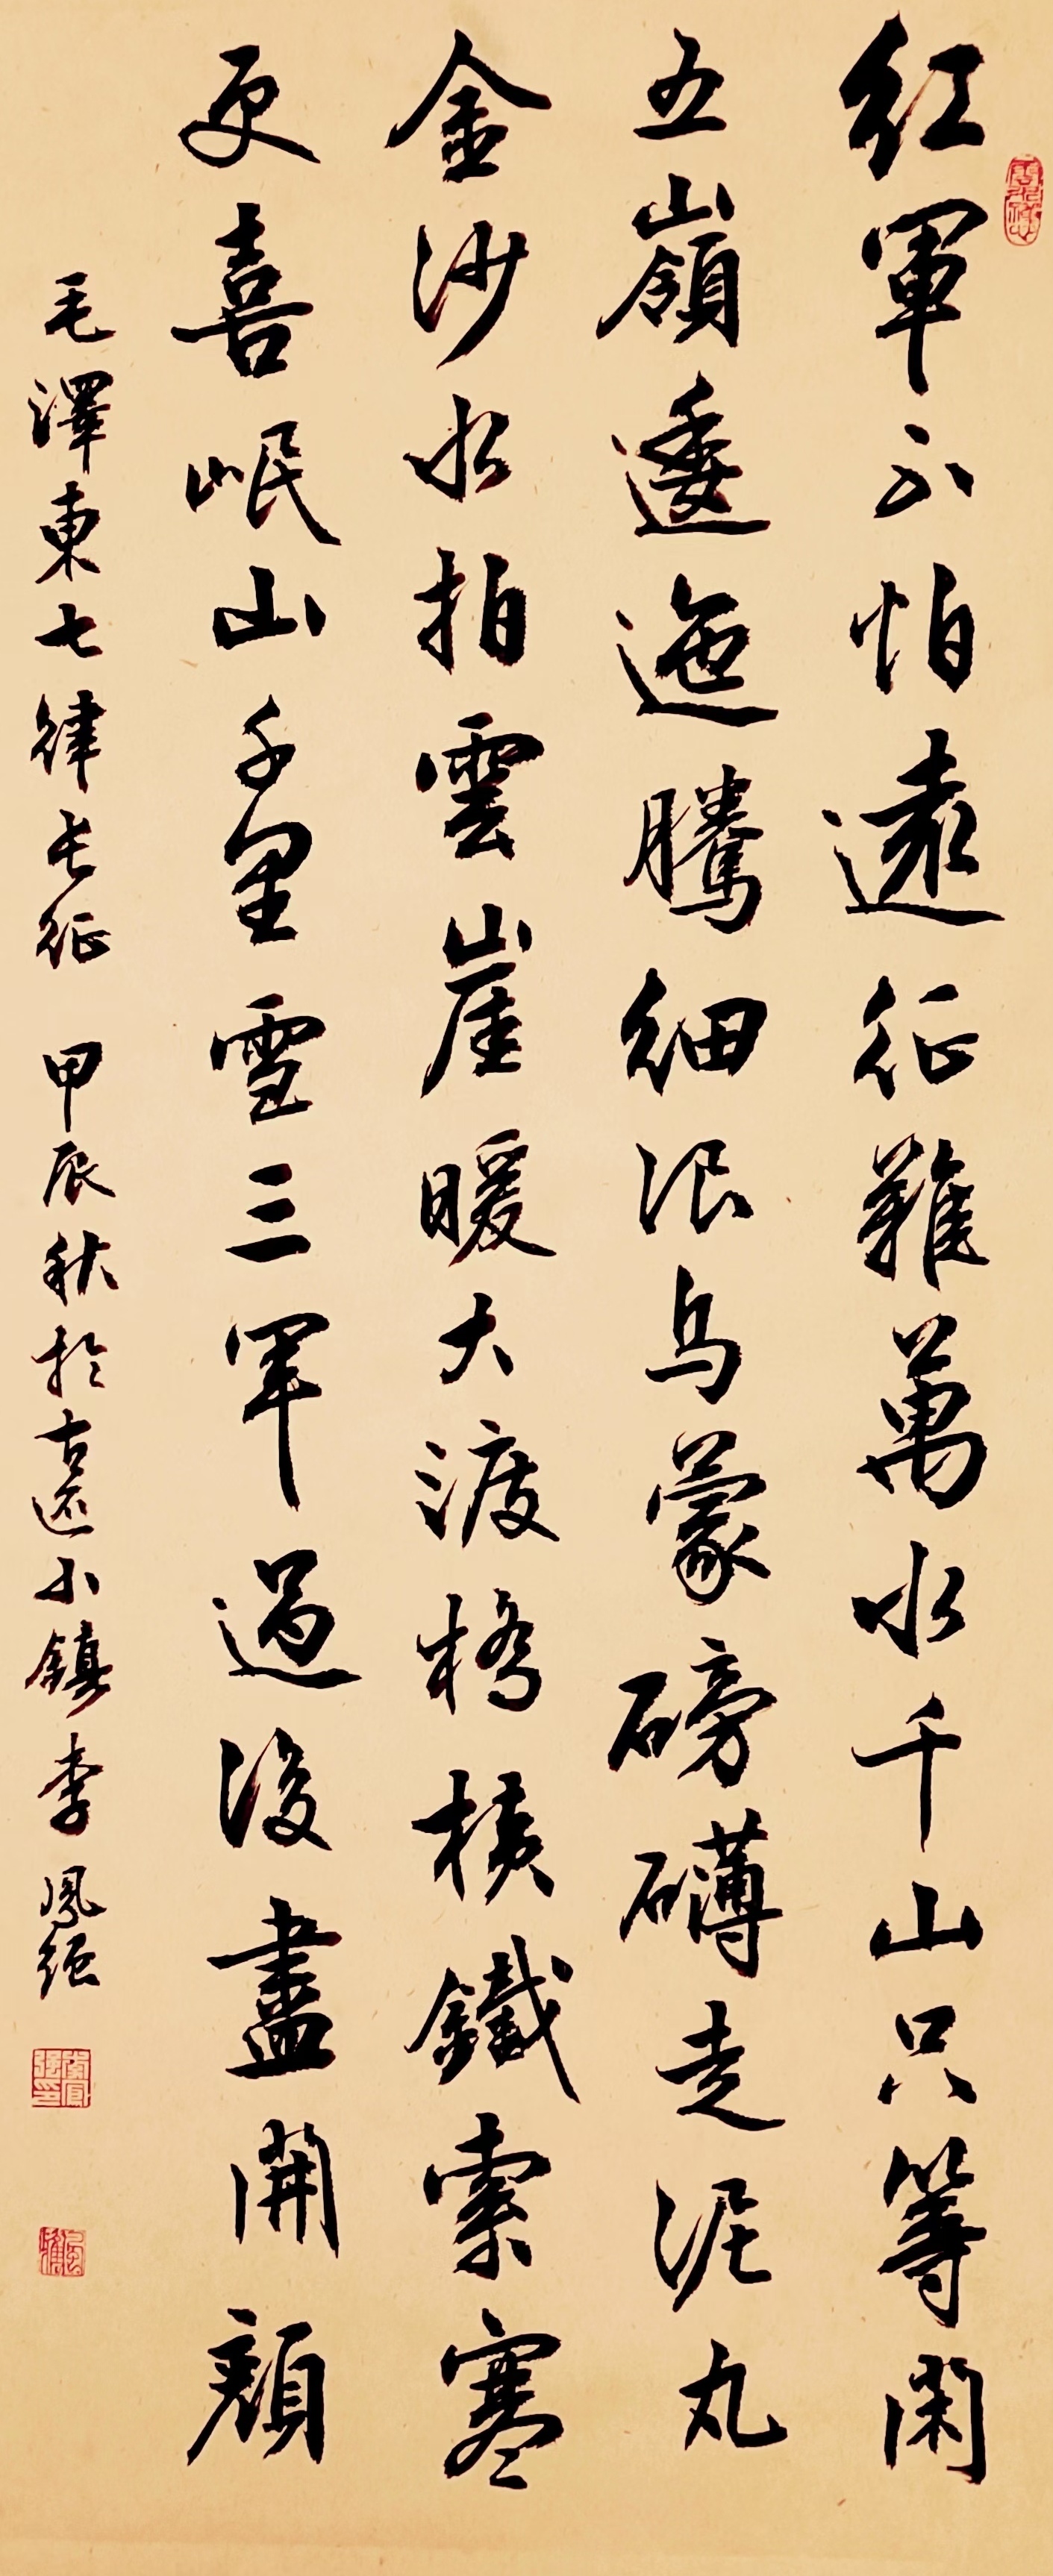 紅軍不怕遠征難萬水千山只等閑
五嶺逶迤騰細浪烏蒙磅礴走泥丸
金沙水拍雲崖暖大渡橋橫鐵索寒
更喜岷山千里雪三軍過後盡開顏
毛澤東七律長征 甲辰秋於古還小鎮李鳳強